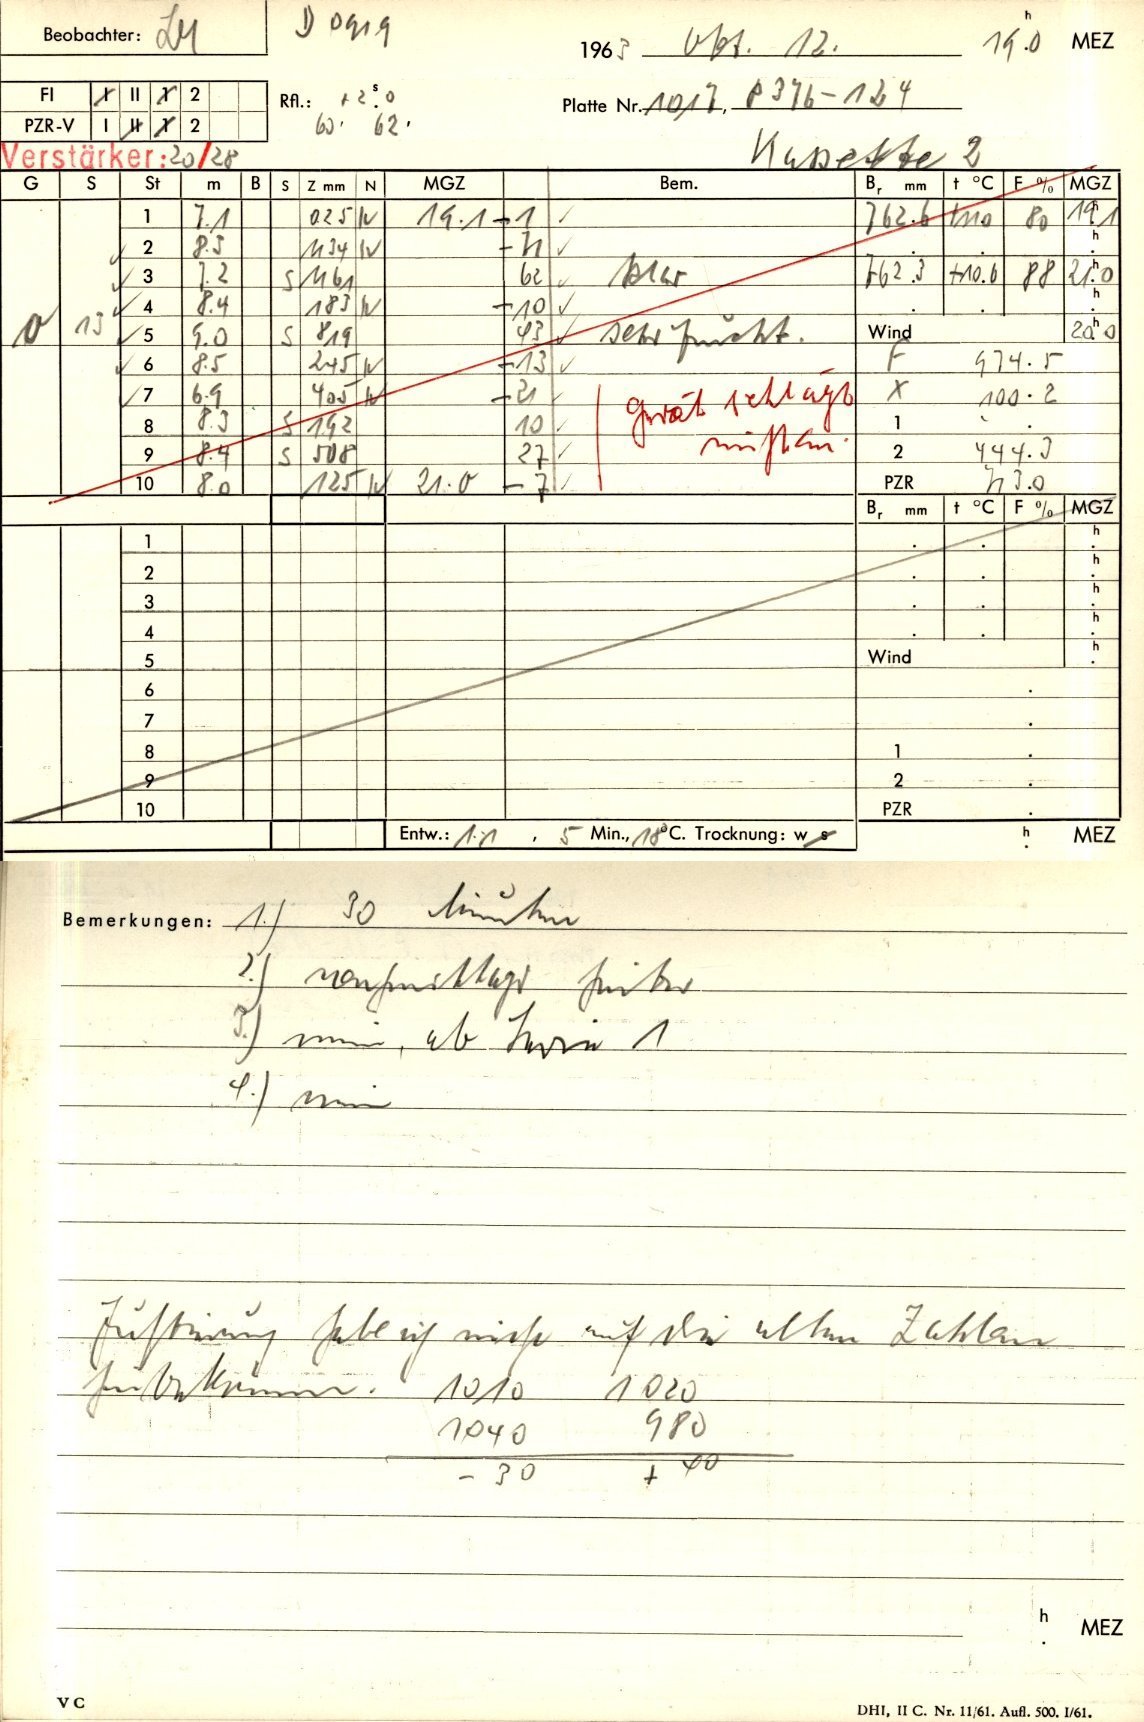 Beobachter: LM D 0919 1963 Okt. 12. 19.0 h MEZ
FI I II 1 2 Rfl.: +2.0 s Platte Nr. 1017, P376-124
PZR-V I II 1 2 60. 62.
Verstärker: 20/28 Kassette 2
G S St m B S Z mm N MGZ Bem. Br mm t °C F % MGZ
0 13
1 7.1 025 N 19.1 -1 ✓ 762.6 80 19.1 h
2 8.3 N ✓ . . h
3 7.2 S 62 ✓ klar 762.3 +10.6 88 21.0 h
4 8.4 183 N -10 ✓ . . h
5 9.0 S 819 43 ✓ sehr feucht. Wind 20.0 h
6 8.5 245 N -13 ✓ F 974.5
7 6.9 405 N -21 ✓ Gerät schlägt X 100.2
8 8.3 S 192 10 ✓ 1 - .
9 8.4 S 508 27 ✓ 2 444.3
10 8.0 125 N 21.0 -7 ✓ PZR
Br mm t °C F % MGZ
1 . . h
2 . . h
3 . . h
4 . . h
5 Wind h
6 .
7 .
8 1 .
9 2 .
10 PZR .
Entw.: 1:1 , 5 Min., 18°C. Trocknung: w s h MEZ
Bemerkungen: 1.) 30 Minuten
2.) nachmittags heiter
3.) nein, ab Serie 1
4.) nein
Justierung habe ich nicht auf die alten Zahlen
hinbekommen. 1010 1020
1040 980
- 30 + 40
h MEZ
V C
DHI, II C. Nr. 11/61. Aufl. 500. I/61.